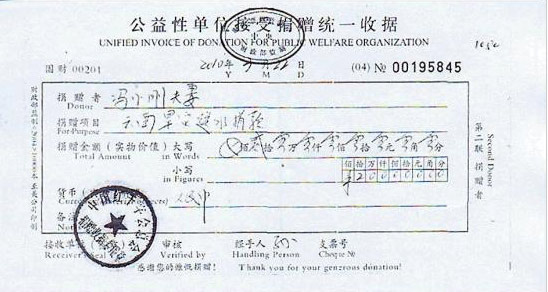 公益性单位接受捐赠统一收据
UNIFIED INVOICE OF DONATION FOR PUBLIC WELFARE ORGANIZATION
国财 00201
2010年 3月22日
Y M D
(04) № 00195845
捐赠者 冯小刚夫妻
Donor
捐赠项目 云南旱灾
For Purpose
捐赠金额(实物价值)大写 佰贰拾零万零仟零佰零拾零元零角零分
Total Amount in Words
小写 佰拾万仟佰拾元角分
in Figures ¥20000000
货币( 人民币
备
接收单 审核 经手人 支票号
Receiver's Seal Verified by Handling Person Cheque №
感谢您的慷慨捐赠! Thank you for your generous donation!
第二联 捐赠者
Second Donor
财政部监制